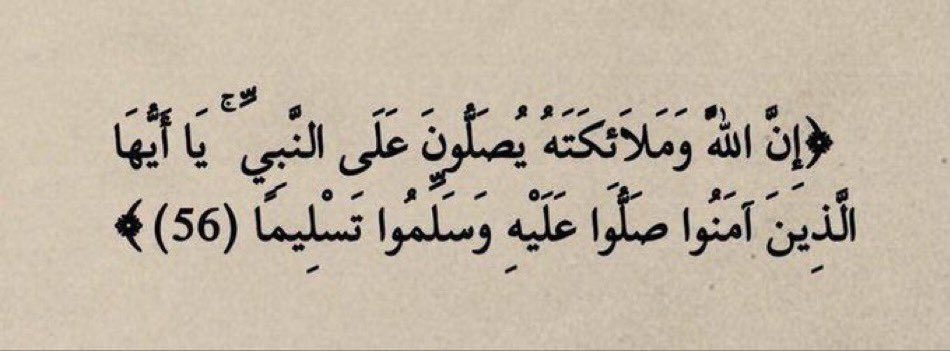 ﴿إِنَّ اللَّهَ وَمَلَائِكَتَهُ يُصَلُّونَ عَلَى النَّبِيِّ ۚ يَا أَيُّهَا
الَّذِينَ آمَنُوا صَلُّوا عَلَيْهِ وَسَلِّمُوا تَسْلِيمًا (56)﴾